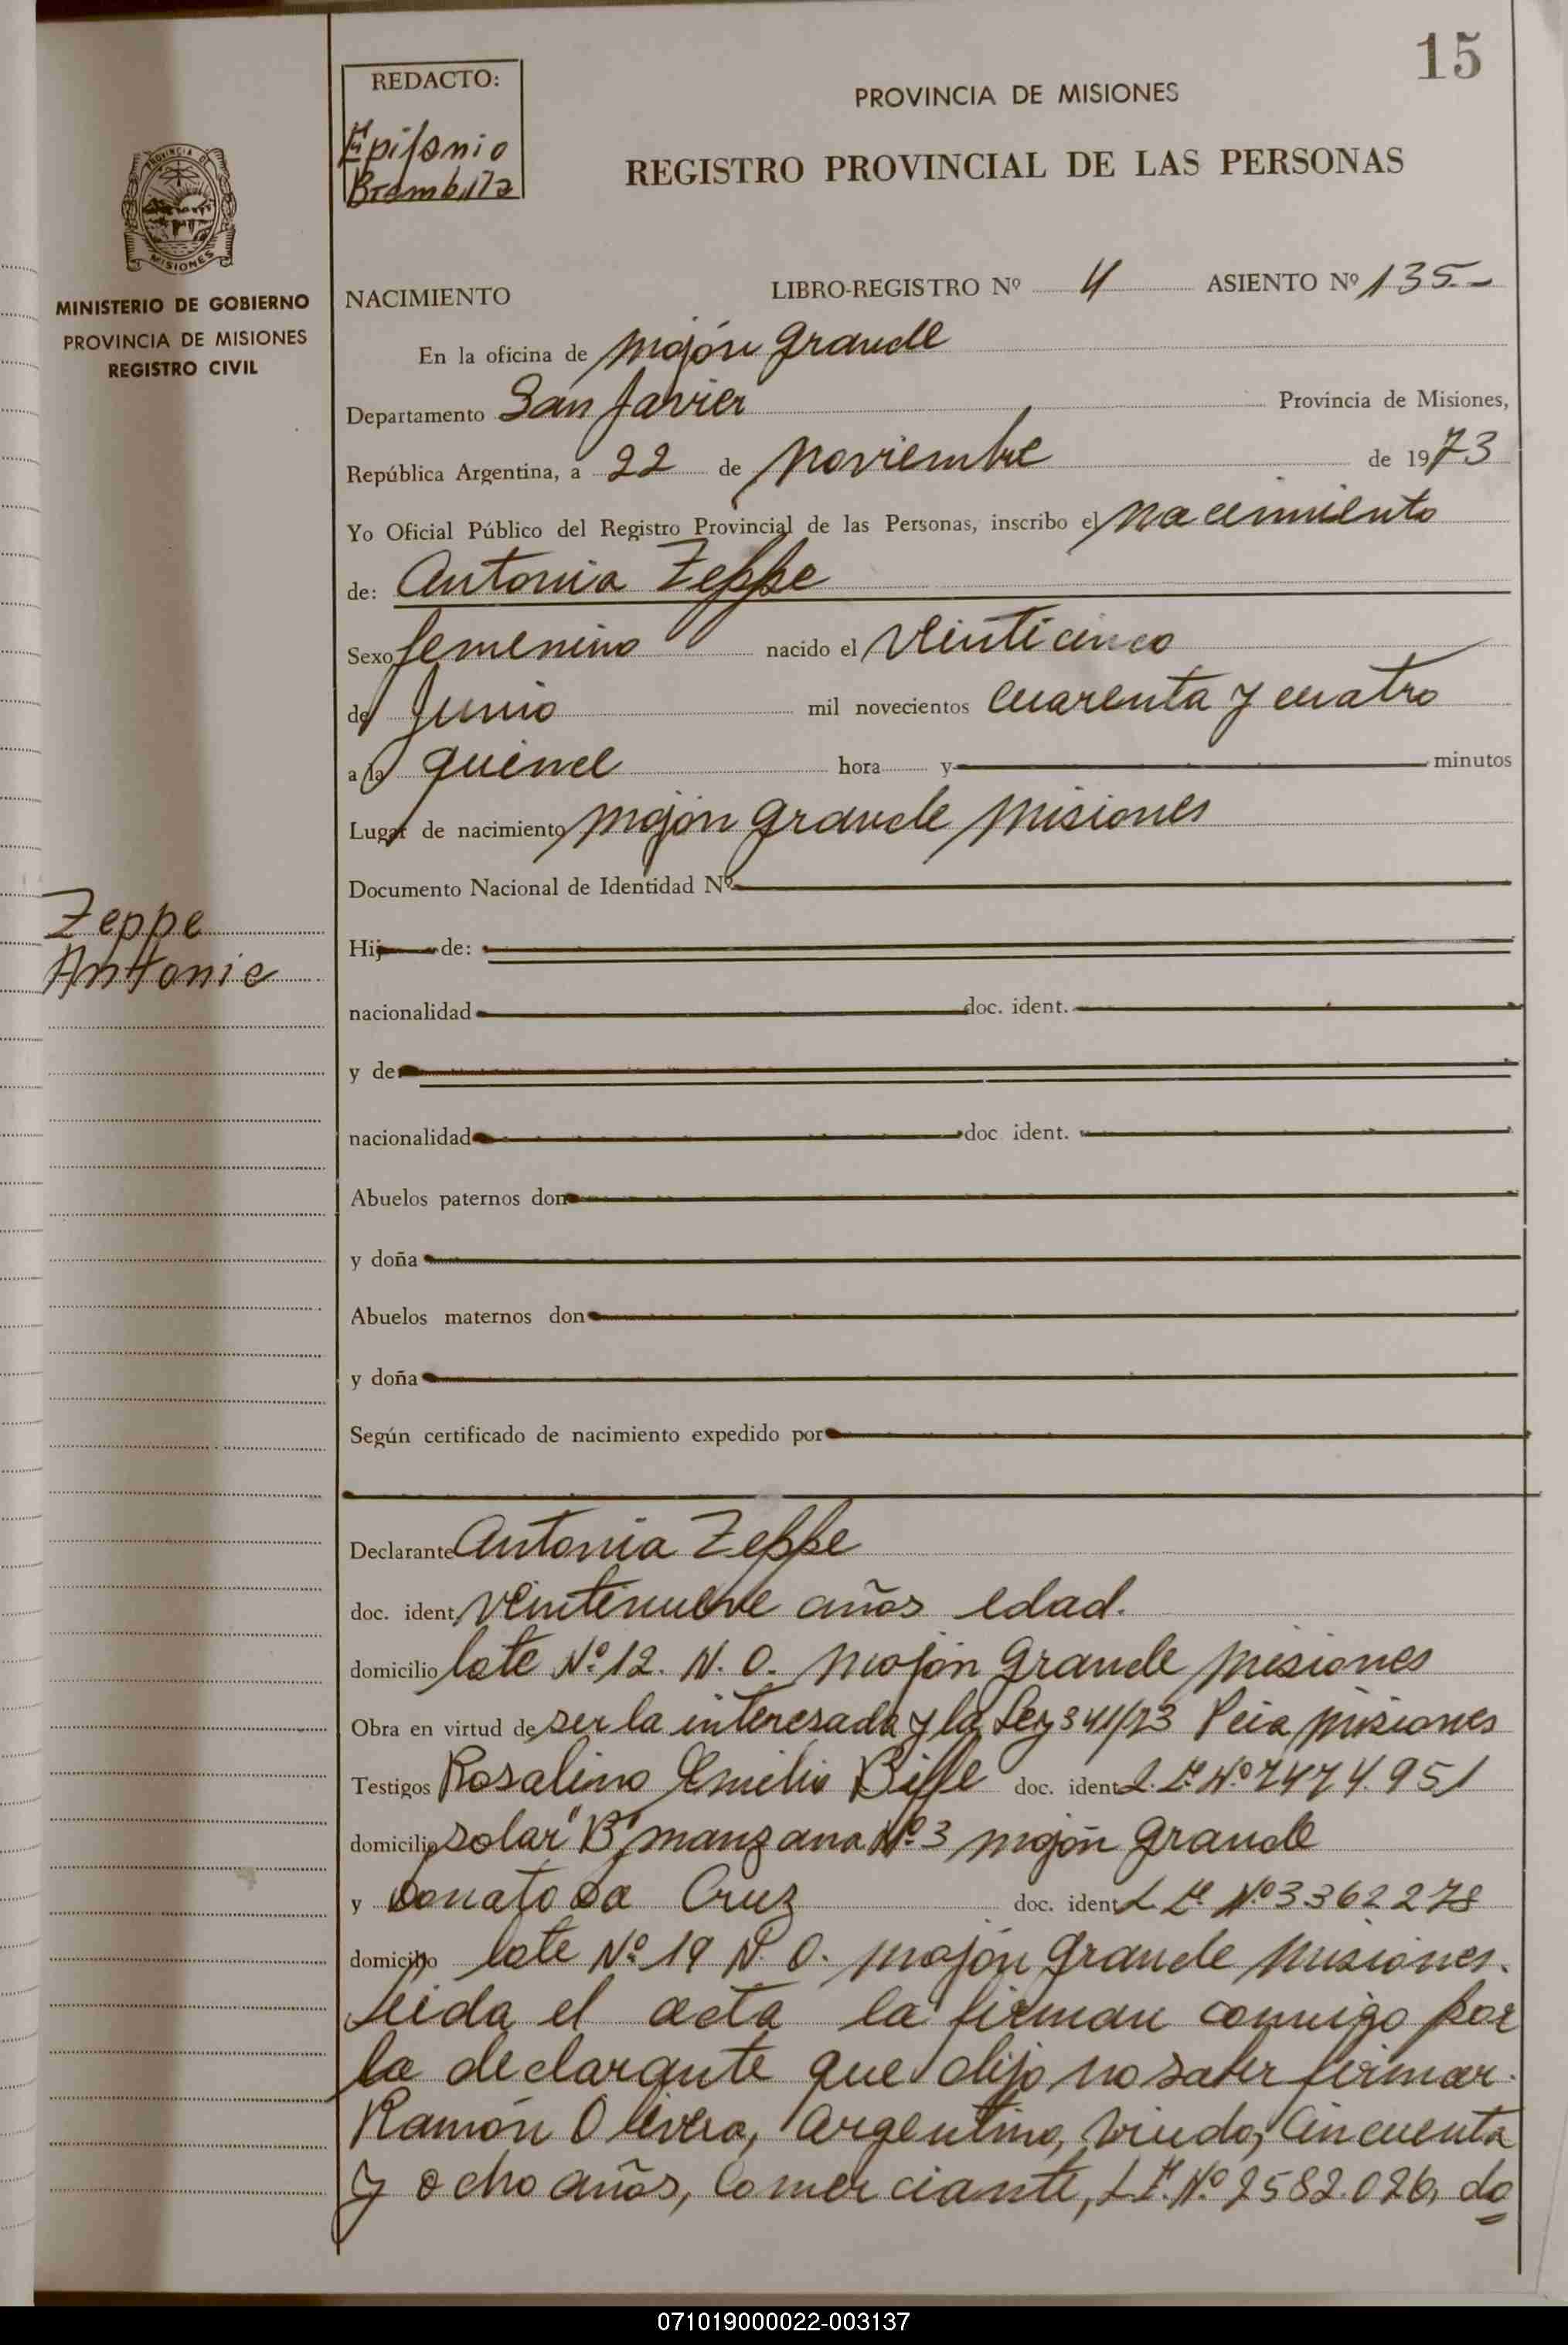 15
REDACTO:
Epifanio
Brambilla
PROVINCIA DE MISIONES
REGISTRO PROVINCIAL DE LAS PERSONAS
PROVINCIA DE
MISIONES
MINISTERIO DE GOBIERNO
PROVINCIA DE MISIONES
REGISTRO CIVIL
NACIMIENTO LIBRO-REGISTRO Nº 4 ASIENTO Nº 135.-
En la oficina de Mojón Grande
Departamento San Javier Provincia de Misiones,
República Argentina, a 22 de Noviembre de 1973
Yo Oficial Público del Registro Provincial de las Personas, inscribo el nacimiento
de: Antonia Zeppe
Sexo femenino nacido el Veinticinco
de Junio mil novecientos cuarenta y cuatro
a la quince hora y minutos
Lugar de nacimiento Mojón Grande Misiones
Documento Nacional de Identidad Nº
Zeppe
Antonia
Hij de:
nacionalidad doc. ident.
y de
nacionalidad doc. ident.
Abuelos paternos don
y doña
Abuelos maternos don
y doña
Según certificado de nacimiento expedido por
Declarante Antonia Zeppe
doc. ident. Veintinueve años edad.
domicilio lote Nº 12. N. O. Mojón Grande Misiones
Obra en virtud de ser la interesada y la Ley 341/73 Pcia Misiones
Testigos Rosalino Emilio Biffe doc. ident. L. E. Nº 7474.951
domicilio solar "B" manzana Nº 3 Mojón Grande
y Donato Da Cruz doc. ident. L E. Nº 3362278
domicilio lote Nº 19 N. O. Mojón Grande Misiones.
Leida el acta la firman conmigo por
la declarante que dijo no saber firmar.
Ramón Olivera, Argentino, viudo, cincuenta
y ocho años, Comerciante, L E. Nº 2582.026, do
071019000022-003137